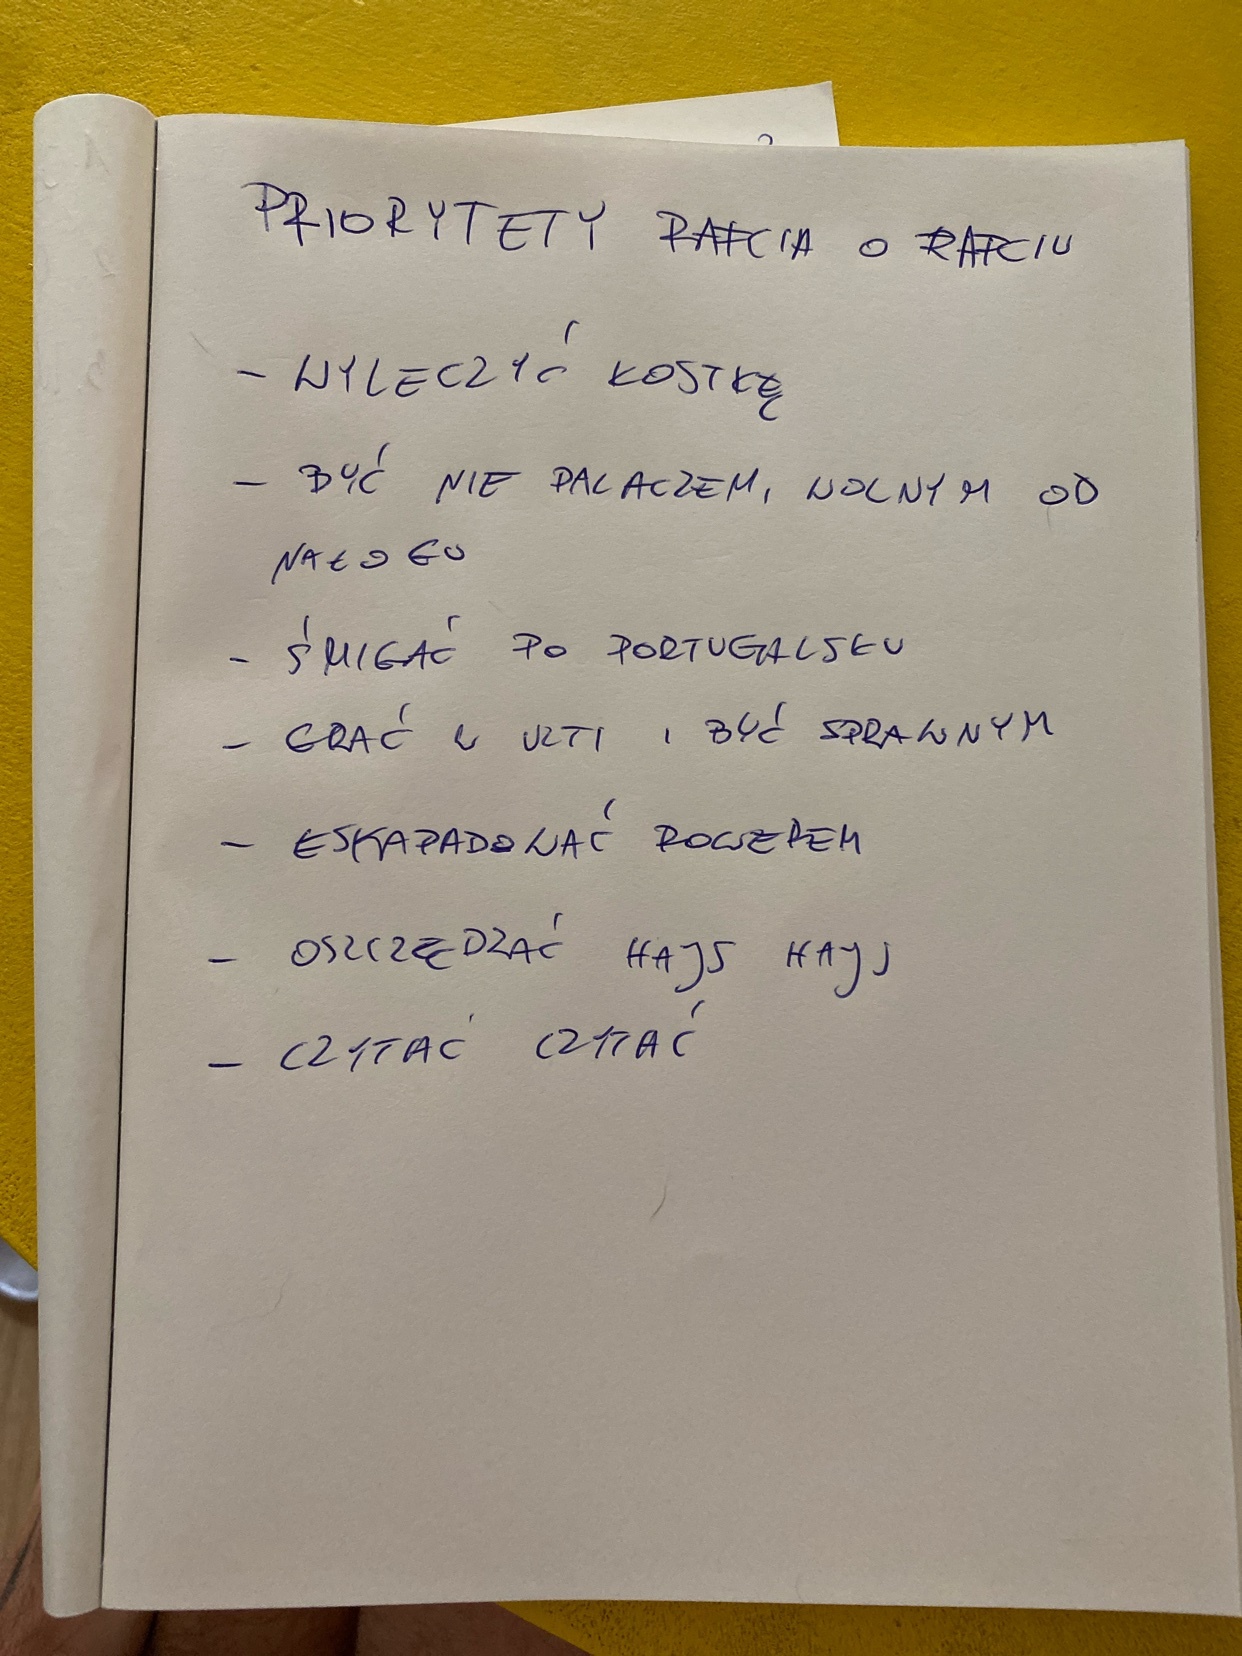 PRIORYTETY RAFCIA O RAFCIU
- WYLECZYĆ KOSTKĘ
- BYĆ NIE PALACZEM, WOLNYM OD
NAŁOGU
- ŚMIGAĆ PO PORTUGALSKU
- GRAĆ W ULTI I BYĆ SPRAWNYM
- ESKAPADOWAĆ ROWEREM
- OSZCZĘDZAĆ HAJS HAJS
- CZYTAĆ CZYTAĆ